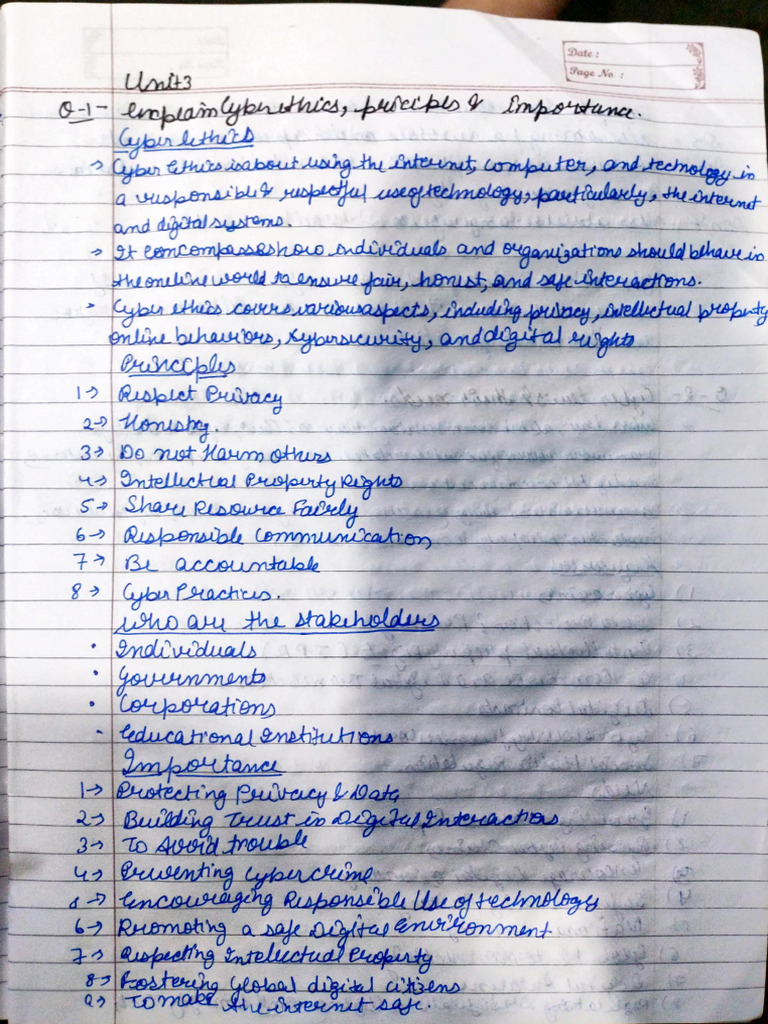 Date :
Page No :
Unit 3
Q-1- explain Cyber ethics, principles & importance.
Cyber Ethics
→ Cyber Ethics is about using the internet, computer, and technology in
a responsible & respectful use of technology, particularly, the internet
and digital systems.
→ It emcompasses how individuals and organizations should behave in
the online world to ensure fair, honest, and safe interactions.
→ Cyber ethics covers various aspects, including privacy, intellectual property
online behaviors, xybersecurity, and digital rights
Principles
1→ Respect Privacy
2→ Honestry.
3→ Do not Harm others
4→ Intellectual Property Rights
5→ Share Resource Fairly
6→ Responsible Communication
7→ Be accountable
8→ Cyber Practices.
who are the stakeholders
• Individuals
• Governments
• Corporations
• Educational Institutions
Importance
1→ Protecting Privacy & Data
2→ Building Trust in Digital Interactions
3→ To Avoid trouble
4→ Preventing cyber crime
5→ Encouraging Responsible Use of technology
6→ Promoting a safe Digital Environment
7→ Respecting Intellectual Property
8→ Fostering Global digital citizens
9→ To make the internet safe.